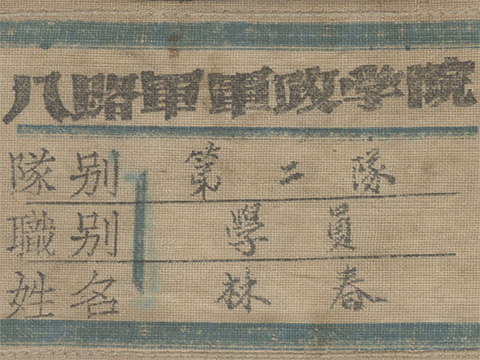 八路軍軍政学院
隊别 第二隊
職别 學員
姓名 林春